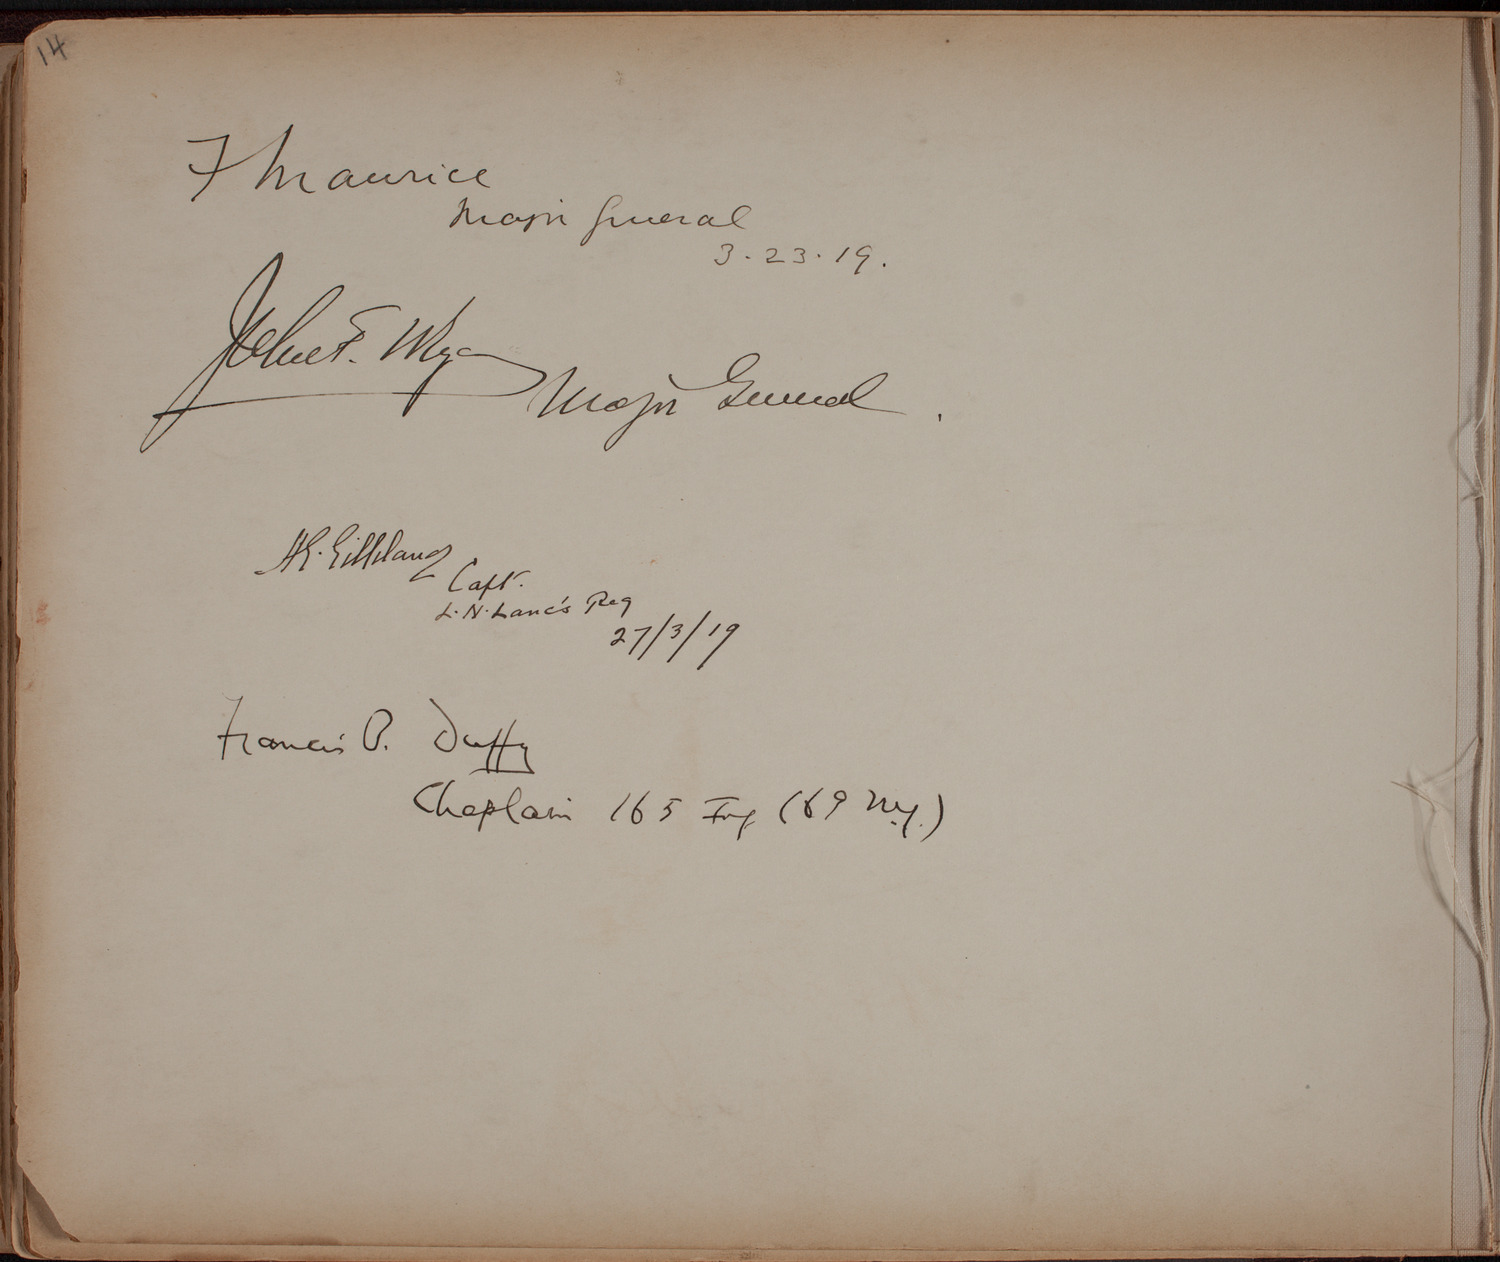 14
F Maurice
Major General
3.23.19.
John F.
Major General.
Gilliland
Capt.
L.N. Lanc's Reg
27/3/19
Francis P. Duffy
Chaplain 165 Inf (69 N.Y.)